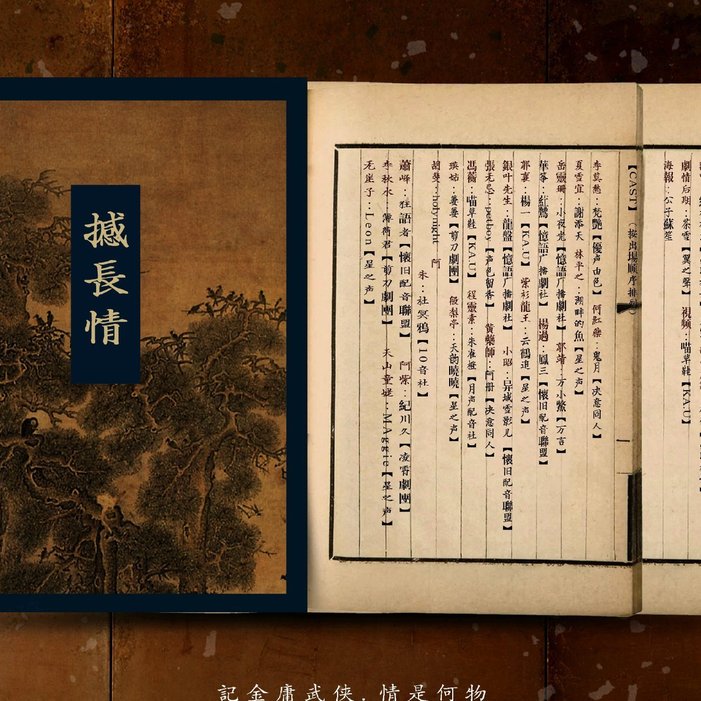 撼長情
劇情后期：茶雪【翼之聲】 視頻：喵草鞋【KA.U】
海報：公子蘇笙
【CAST】（按出場順序排列）
李莫愁：梵艷【優声由色】 何紅藥：鬼月【决意同人】
夏雪宜：謝添天 林平之：湖畔的魚【星之声】
岳靈珊：小夜老【憶語广播劇社】 郭靖：方小鱉【万言】
華筝：紅鸞【憶語广播劇社】 楊過：鳳三【懷旧配音聯盟】
郭襄：楊一【KA.U】 紫衫龍王：云鶴追【星之声】
銀叶先生：龍盤【憶語广播劇社】 小昭：异域雪影儿【懷旧配音聯盟】
張无忌：petboy【声色留香】 黄藥師：阿册【决意同人】
馮蘅：喵草鞋【KA.U】 程靈素：朱雀燈【月声配音社】
瑛姑：姜姜【剪刀劇團】 殷梨亭：天韵曉曉【星之声】
胡斐：holynight 阿
朱：社冥鴉【10音社】
蕭峰：狂語者【懷旧配音聯盟】 阿紫：紀川久【凌霄劇團】
李秋水：薄荷君【剪刀劇團】 天山童姥：MAggie【星之声】
无崖子：Leon【星之声】
記金庸武侠．情是何物